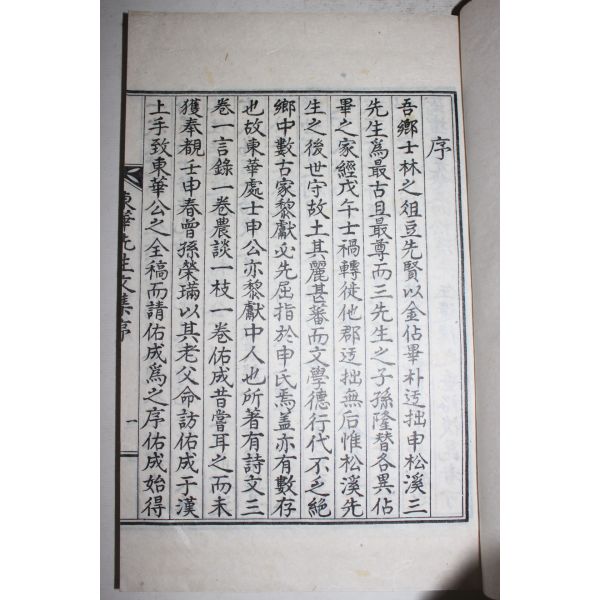 序
吾鄉士林之俎豆先賢以金佔畢朴迂拙申松溪三
先生爲最古且最尊而三先生之子孫隆替各異佔
畢之家經戊午士禍轉徙他郡迂拙無后惟松溪先
生之後世守故土其麗甚蕃而文學德行代不乏絶
鄉中數古家黎獻必先屈指於申氏焉盖亦有數存
也故東華處士申公亦黎獻中人也所著有詩文三
卷一言錄一卷農談一枝一卷佑成昔嘗耳之而未
獲奉覩壬申春曾孫榮㻶以其老父命訪佑成于漢
上手致東華公之全稿而請佑成爲之序佑成始得
東華先生文集序
一